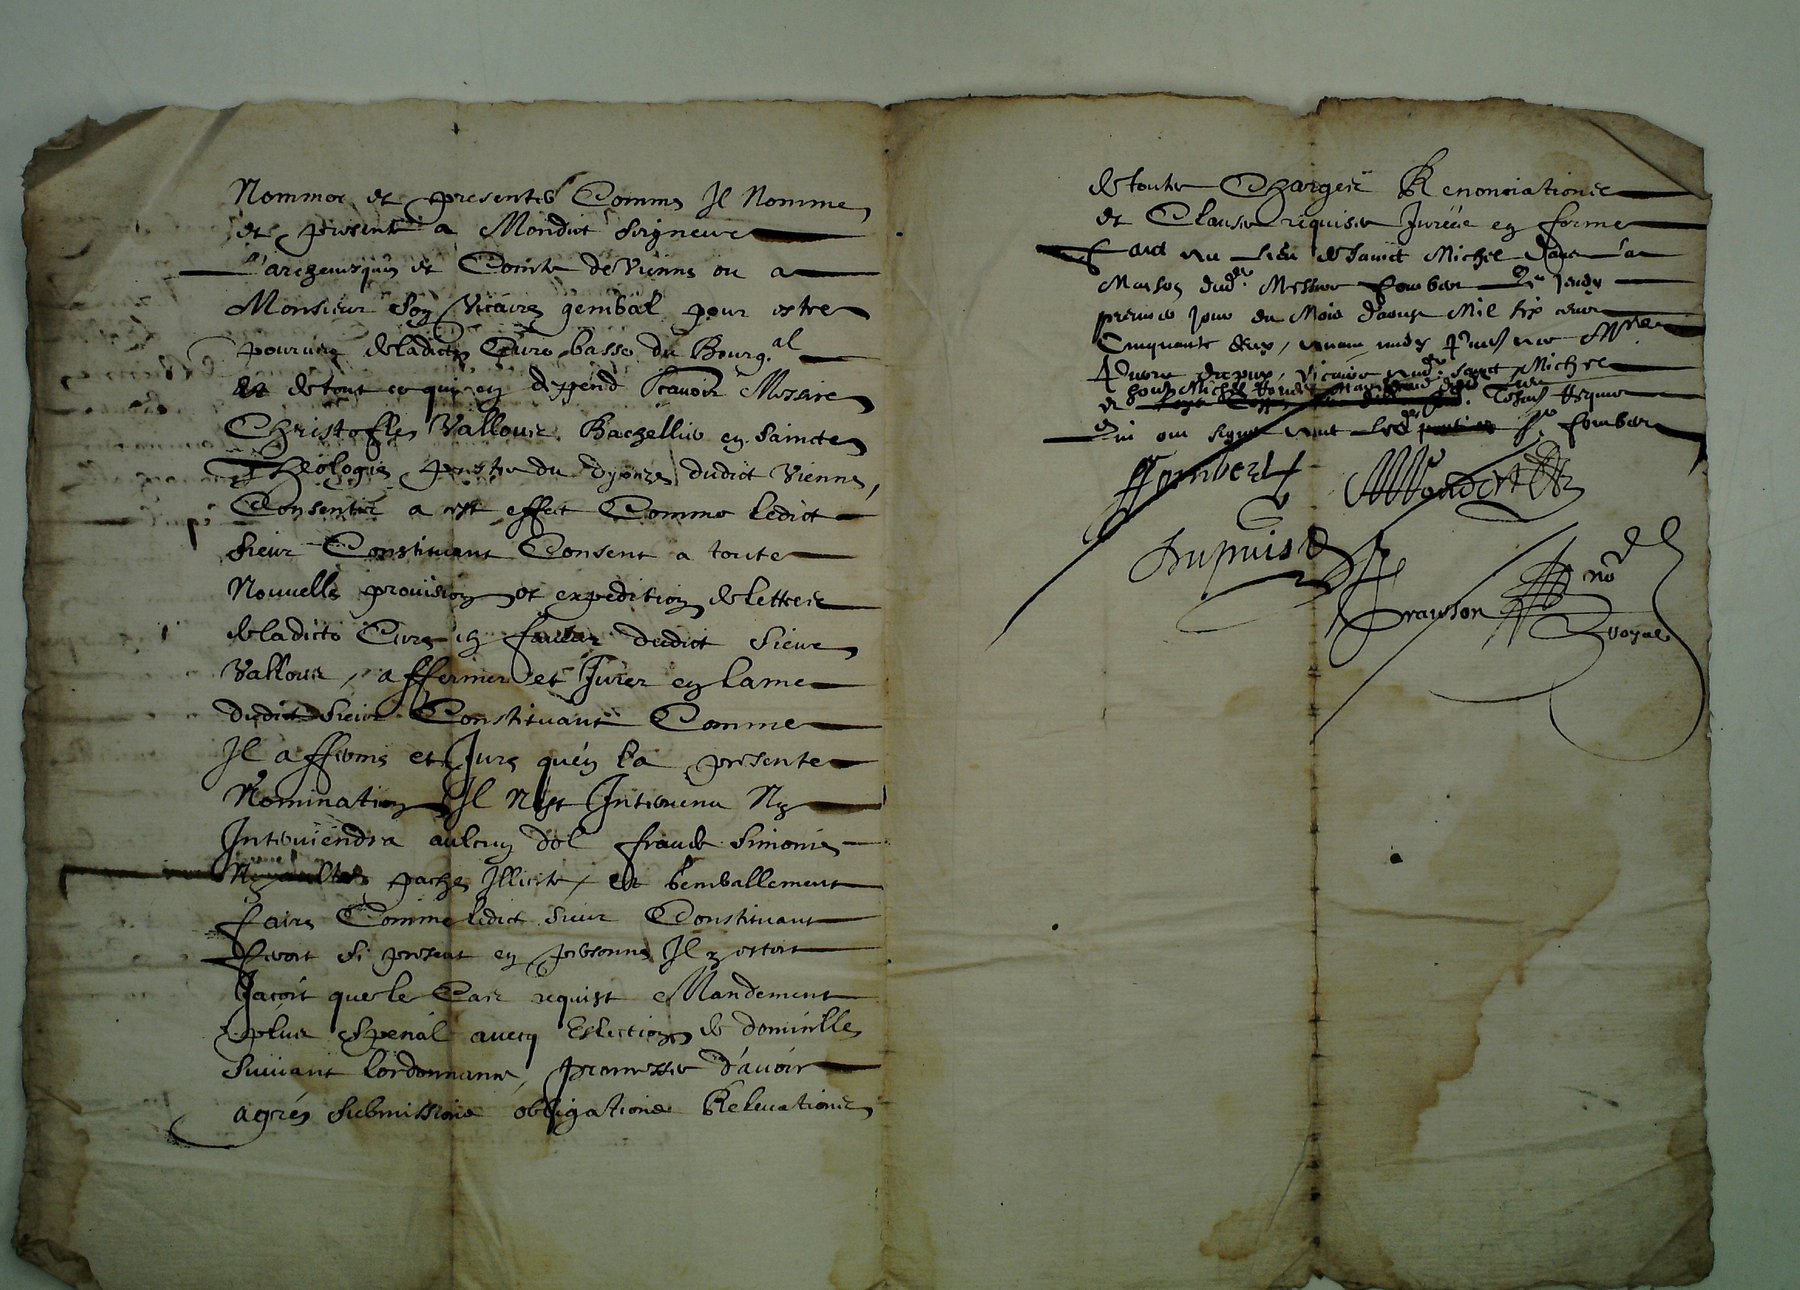 Nommer et presenter Comme Il Nomme
et presente a Mondict Seigneur
L'archevesque et Comte de Vienne ou a
Monsieur Son Vicaire general pour estre
pourveu de ladicte Cure basse du Bourg.al
et de tout ce qui en depend Scavoir Messire
Christofle Vallour Bachellier en Saincte
Theologie prestre du dioceze dudict Vienne,
Consentir a cest effect Comme ledict
Sieur Constituant Consent a toute
Nouvelle provision et expedition de lettres
de ladicte Cure en faveur dudict Sieur
Vallour, affermer et Jurer en lame
dudict Sieur Constituant Comme
Il afferme et Jure qu'en la presente
Nomination Il Nest Intervenu Ny
Interviendra aulcun dol fraude Simonie
pache Illicite, et generallement
faire Comme ledict Sieur Constituant
feroit Si present en personne Il y estoit
Jacoit que le Cas requist Mandement
plus Special avecq Eslection de domicille
Suivant lordonnance, promesse d'avoir
agreé Submissions obligations Relevations
de toutes Charges Renonciations
et Clauses requises Jurées en forme
faict au lieu de Sainct Michel dans la
Maison dud. Messire Jombert Le Jeudy
premier Jour du Mois daoust Mil Six cens
Cinquante deux, avant midy presens Mre
dupuy, Vicaire aud. Sainct Michel
et Michel tesmoins requis
Qui ont signé avec led. Sr. Jombert
Jombert
Dupuis
no
royal